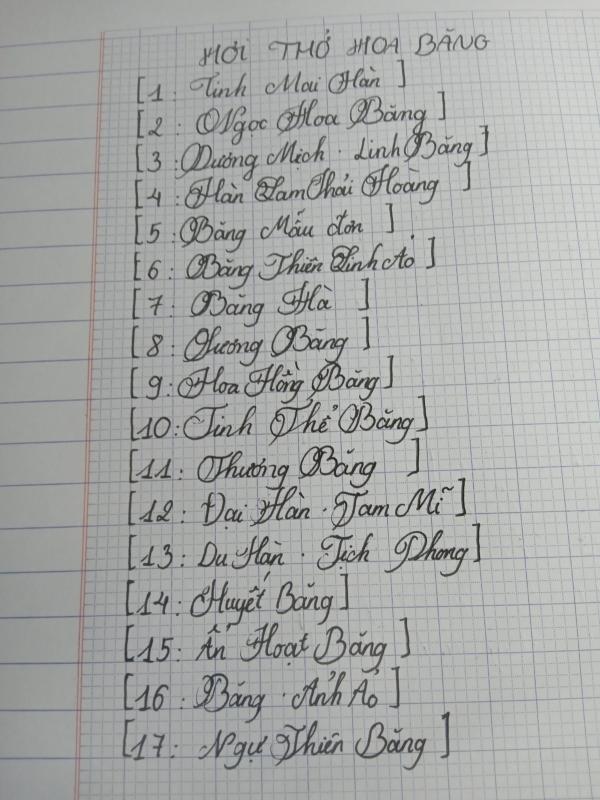 HƠI THỞ HOA BĂNG
[1: Tinh Mai Hàn]
[2: Ngọc Hoa Băng]
[3: Dương Mịch · Linh Băng]
[4: Hàn Lam Thái Hoàng]
[5: Băng Mẫu đơn]
[6: Băng Thiên Linh Ảo]
[7: Băng Hà]
[8: Sương Băng]
[9: Hoa Hồng Băng]
[10: Tinh Thể Băng]
[11: Thương Băng]
[12: Đại Hàn · Tam Mĩ]
[13: Du Hàn · Tịch Phong]
[14: Huyết Băng]
[15: Ấn Hoạt Băng]
[16: Băng · Ảnh Ảo]
[17: Ngự Thiên Băng]